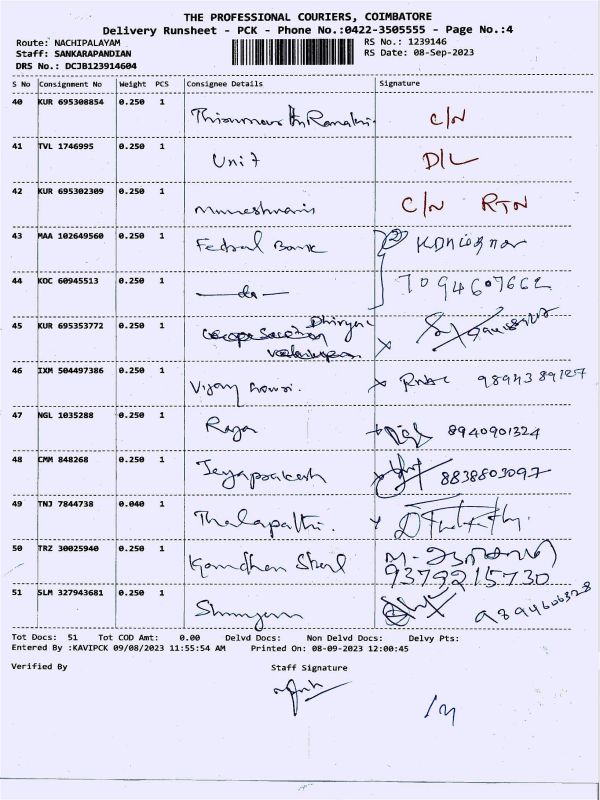 THE PROFESSIONAL COURIERS, COIMBATORE
Delivery Runsheet - PCK - Phone No.:0422-3505555 - Page No.:4
Route: NACHIPALAYAM RS No.: 1239146
Staff: SANKARAPANDIAN RS Date: 08-Sep-2023
DRS No.: DCJB123914604
S No Consignment No Weight PCS Consignee Details Signature
40 KUR 695308854 0.250 1 C/N
41 TVL 1746995 0.250 1 Unit D/L
42 KUR 695302309 0.250 1 C/N RTN
43 MAA 102649560 0.250 1 Fedral Bank 2
44 KOC 60945513 0.250 1 —do— 7094607662
45 KUR 695353772 0.250 1
46 IXM 504497386 0.250 1 Vijay
47 NGL 1035288 0.250 1 Raja 8940901324
48 CMM 848268 0.250 1 Jeyaprakash 8838803097
49 TNJ 7844738 0.040 1 Thalapathi.
50 TRZ 30025940 0.250 1
9379215730
51 SLM 327943681 0.250 1 9894606328
Tot Docs: 51 Tot COD Amt: 0.00 Delvd Docs: Non Delvd Docs: Delvy Pts:
Entered By :KAVIPCK 09/08/2023 11:55:54 AM Printed On: 08-09-2023 12:00:45
Verified By Staff Signature